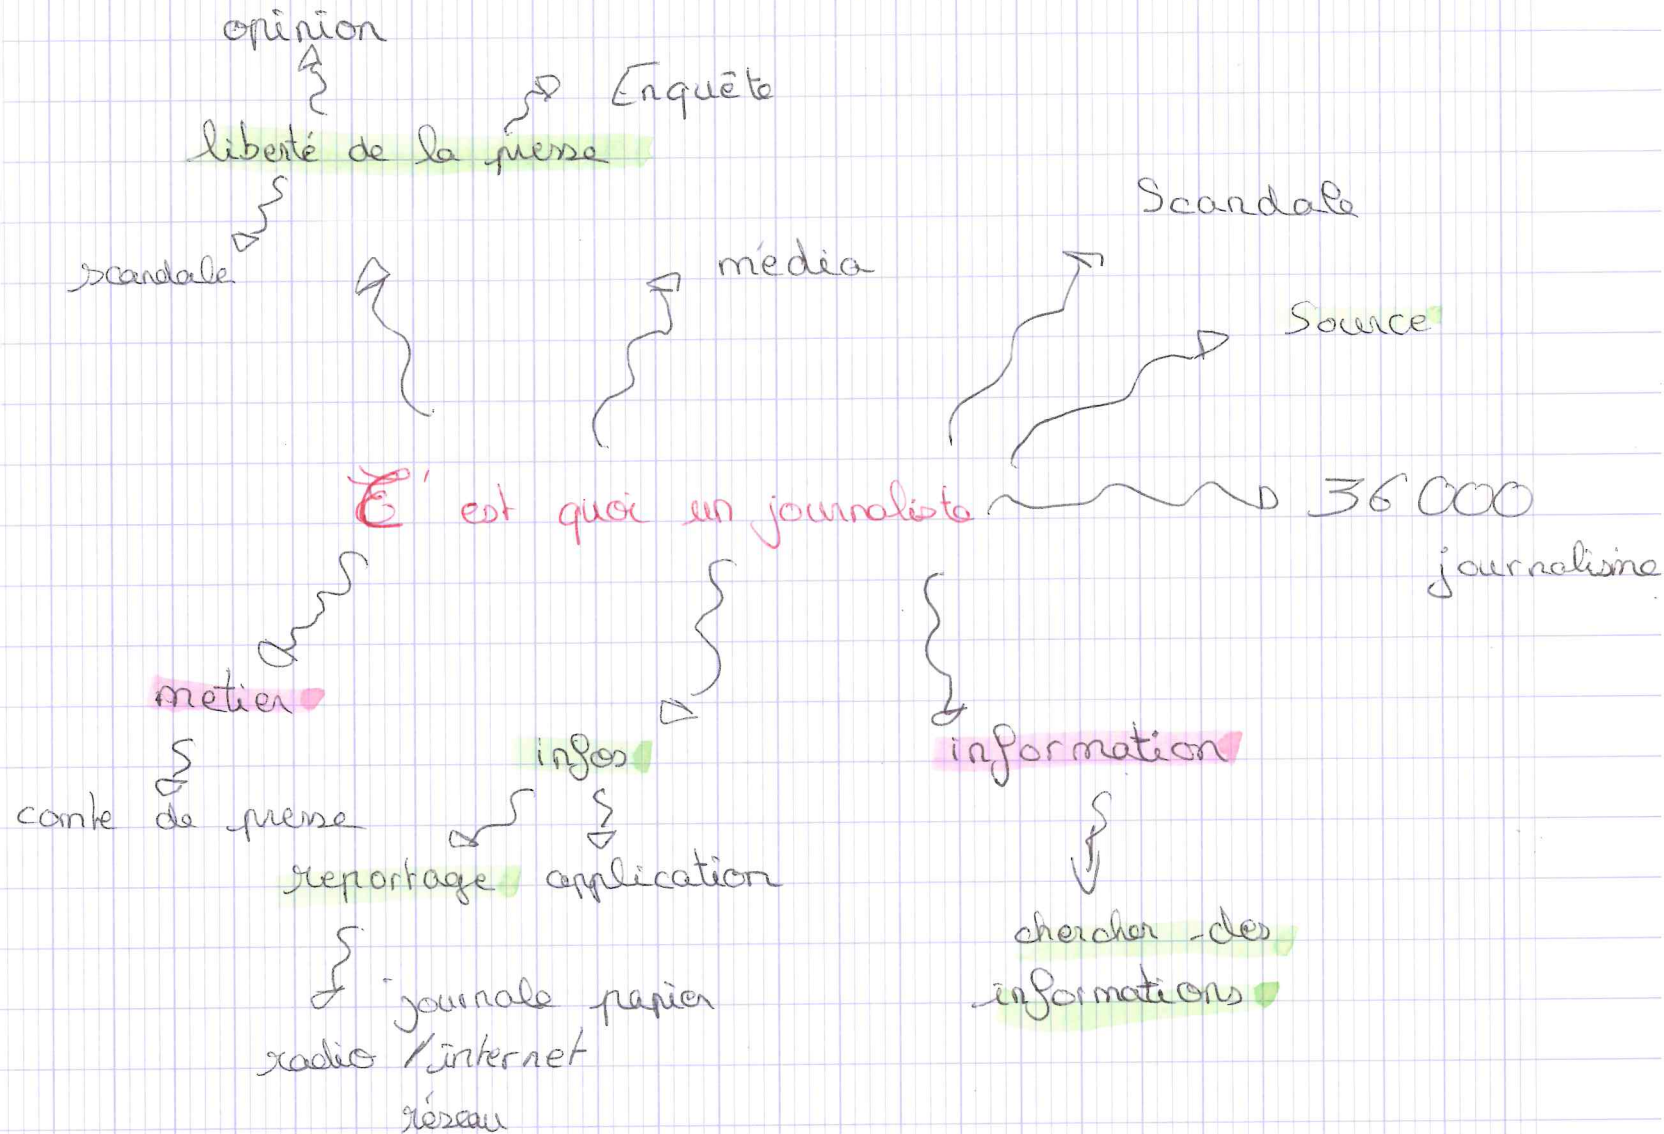 opinion
Enquête
liberté de la presse
Scandale
scandale
média
Source
C'est quoi un journaliste
36 000
journalisme
metier
infos
information
carte de presse
reportage
application
chercher des
informations
journale papier
radio / internet
réseau